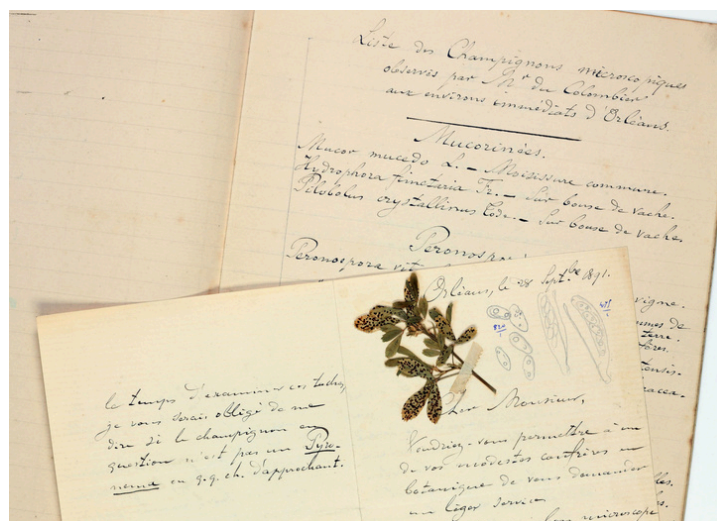 Liste des Champignons microscopiques
observés par Mr du Colombier
aux environs immédiats d'Orléans.
Mucorinées.
Mucor mucedo L. – Moisissure commune.
Hydrophora fimetaria Fr. – Sur bouse de vache.
Pilobolus crystallinus Tode. – Sur bouse de vache.
Peronospo
Peronospora vit
vigne.
mmes de
terre.
Orléans, le 28 Septbre 1891.
Cher Monsieur,
Voudriez-vous permettre à un
de vos modestes confrères en
botanique de vous demander
un léger service
microscope
le temps d'examiner ces taches,
je vous serais obligé de me
dire si le champignon en
question n'est pas un Pyre-
nema ou q.q. ch. d'approchant.